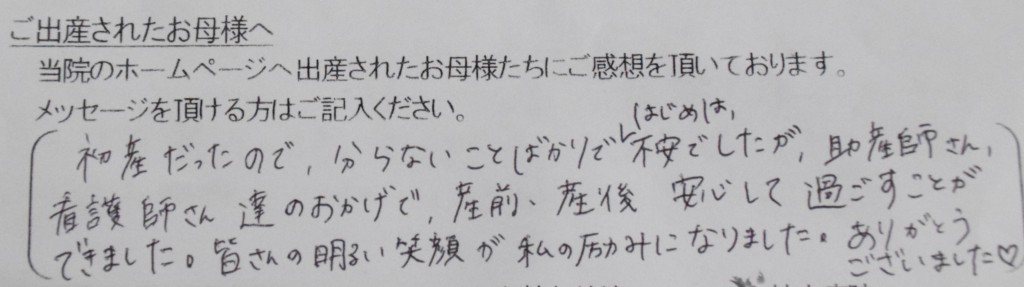 ご出産されたお母様へ
当院のホームページへ出産されたお母様たちにご感想を頂いております。
メッセージを頂ける方はご記入ください。
初産だったので、分らないことばかりではじめは、不安でしたが、助産師さん、
看護師さん達のおかげで、産前、産後 安心して過ごすことが
できました。皆さんの明るい笑顔が私の励みになりました。ありがとう
ございました♡